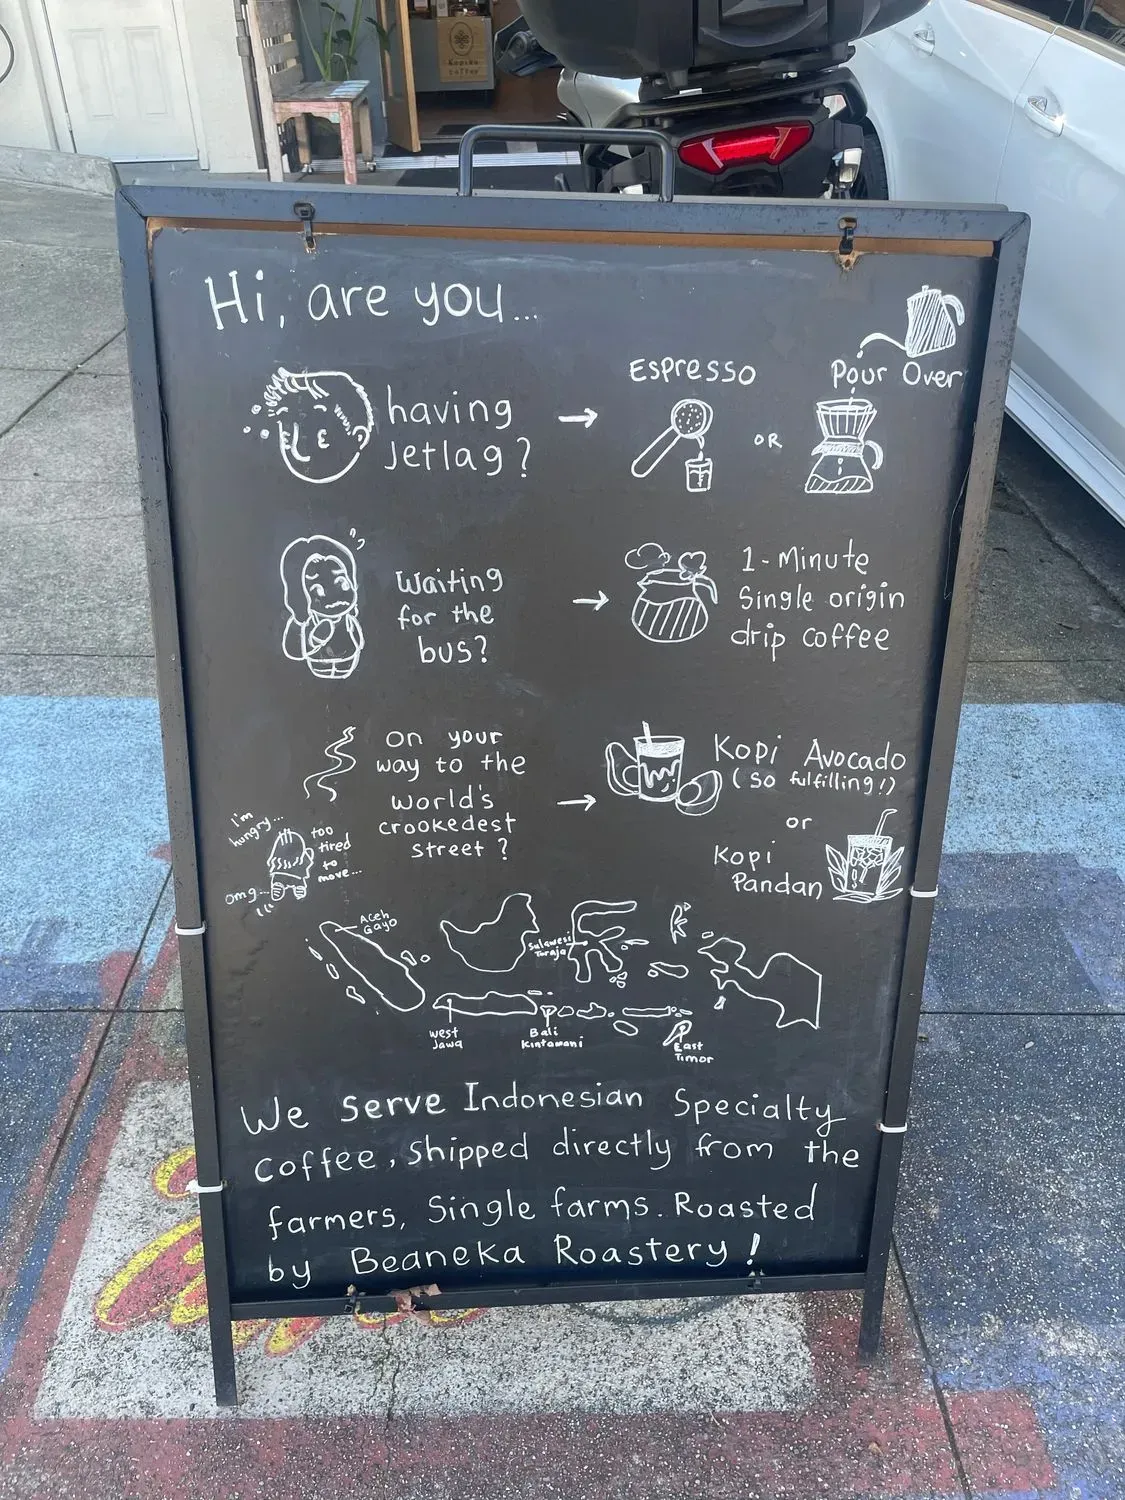 Kopiku
coffee
Hi, are you...
having
Jetlag?
Espresso
OR
Pour Over
Waiting
for the
bus?
1-Minute
Single origin
drip coffee
on your
way to the
world's
crookedest
street?
I'm
hungry...
too
tired
to
move...
omg...
Kopi Avocado
(so fulfilling!)
or
Kopi
Pandan
Aceh
Gayo
Sulawesi
Toraja
West
Jawa
Bali
Kintamani
East
Timor
We serve Indonesian Specialty
coffee, shipped directly from the
farmers, Single farms. Roasted
by Beaneka Roastery!